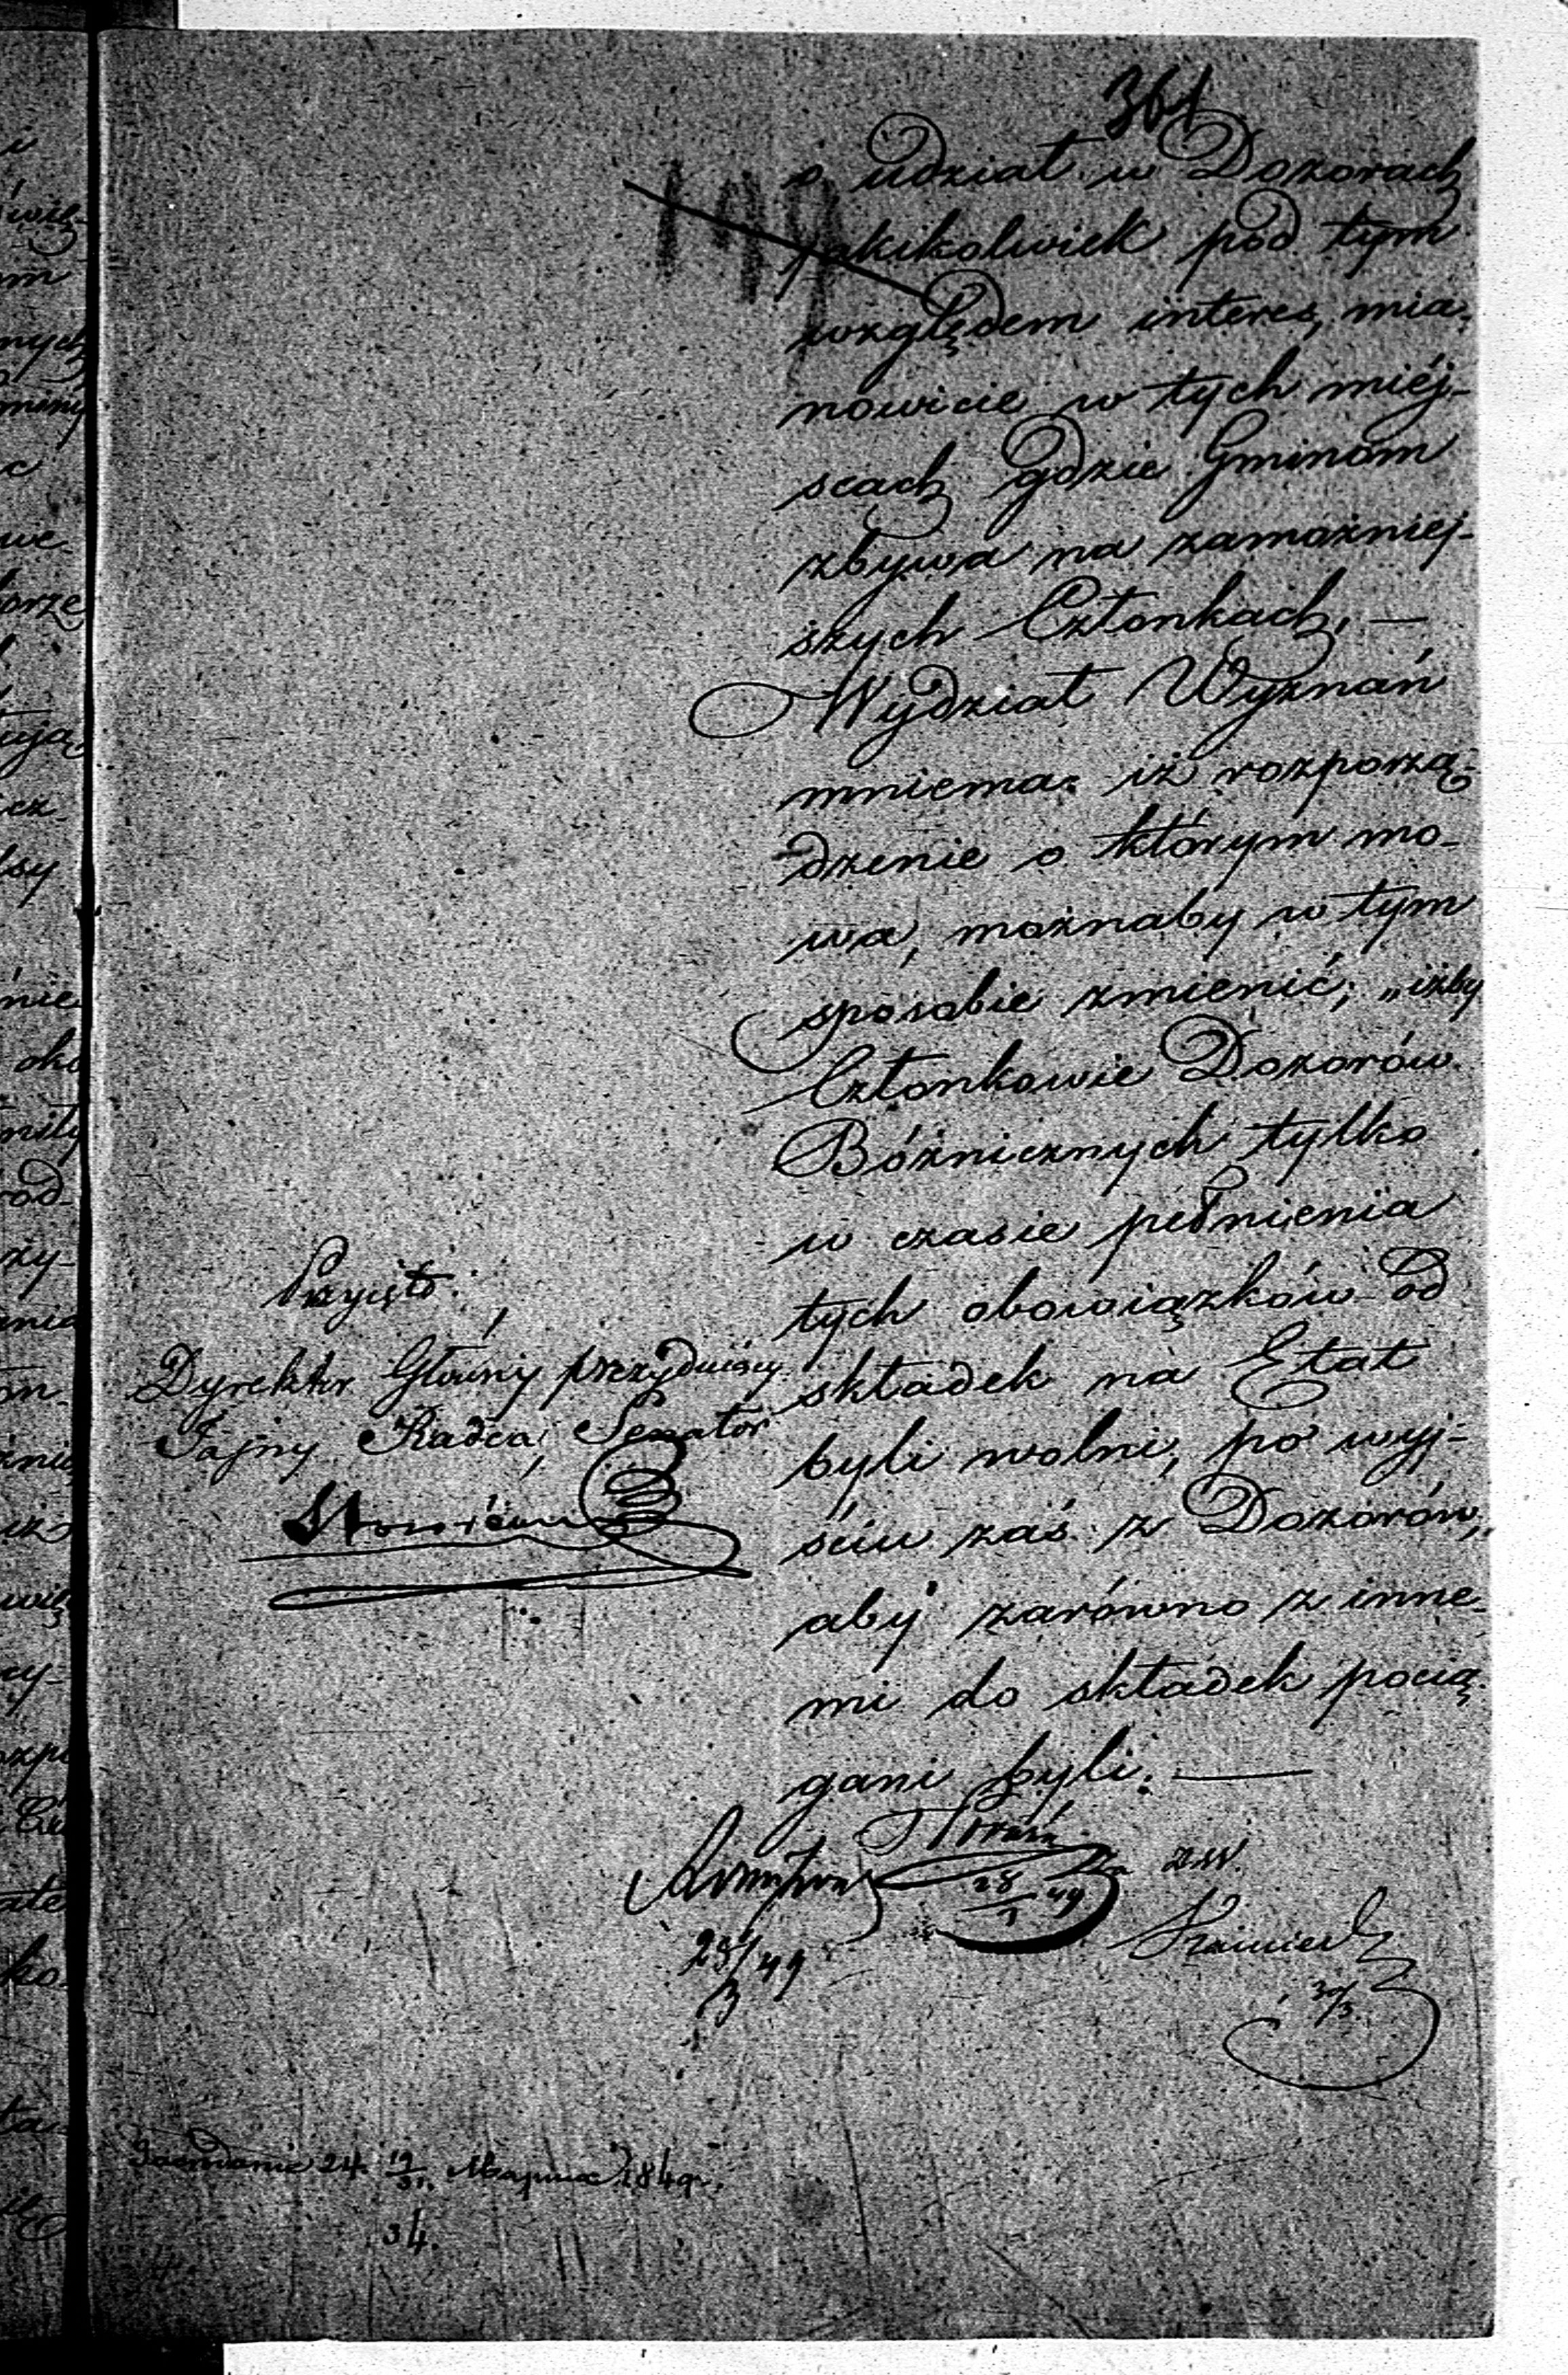 361
149
o udział w Dozorach
jakikolwiek pod tym
względem interes, mia-
nowicie w tych miéj-
scach gdzie Gminom
zbywa na zamożniej-
szych Członkach. —
Wydział Wyznań
mniema: iż rozporzą-
dzenie o którym mo-
wa, możnaby w tym
sposobie zmienić; „iżby
Członkowie Dozorów
Bóżnicznych tylko
w czasie pełnienia
tych obowiązków od
składek na Etat
byli wolni, po wyj-
ściu zaś z Dozorów,
aby zarówno z inne-
mi do składek pocią-
gani byli. —
Przyjęto.
Dyrektor Główny prezydujący
Tajny Radca, Senator
28/3 49
28/3 49
30/3
24 19/31 Marca 1849 r.
34.